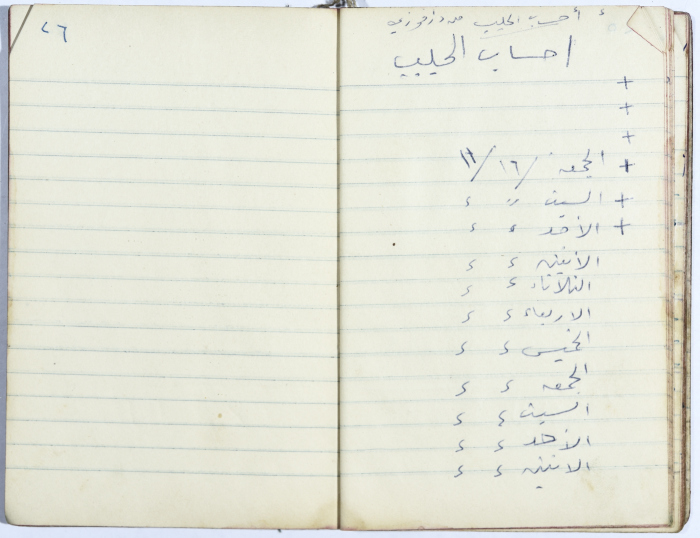 أحسب الحليب من
احساب الحليب
+
+
+
+ الجمعه ١٦/ ١١/
+ السبت ״ ء
+ الأحد ء ء
الأثنين ء ء
الثلاثاء ء ء
الاربعاء ء ء
الخميس ء ء
الجمعه ء ء
السبت ء ء
الأحد ء ء
الاثنين ء ء
٤٦